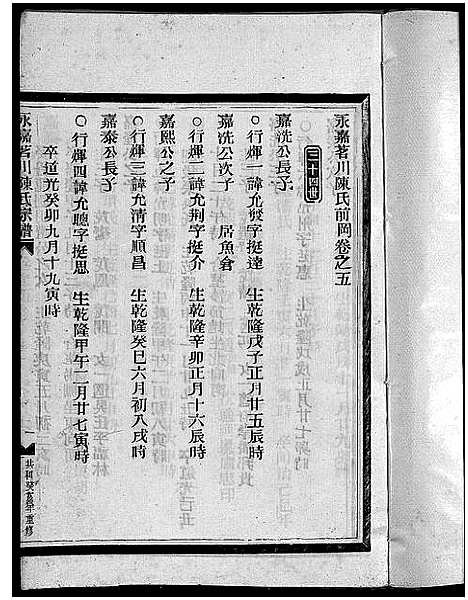 永嘉茗川陳氏前岡卷之五
三十四世
嘉洗公長子
行輝一諱允發字挺達 生乾隆戊子正月廿五辰時
嘉洗公次子 居魚倉
行輝二諱允荆字挺介 生乾隆辛卯正月十六辰時
嘉熙公之子
行輝三諱允清字順昌 生乾隆癸巳六月初八戌時
嘉泰公長子
行輝四諱允聰字挺思 生乾隆甲午二月廿七寅時
卒道光癸卯九月十九寅時
永嘉茗川陳氏宗譜
共和癸亥年重修